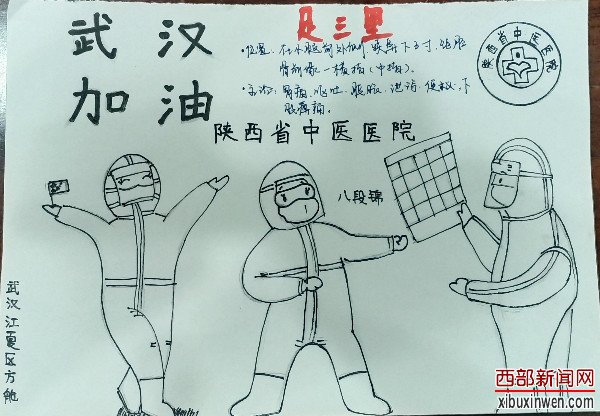 武汉
加油
足三里
·位置:在小腿前外侧,犊鼻下3寸,距胫
骨前缘一横指(中指)。
·主治:胃痛、呕吐、腹胀、泄泻、便秘、下
肢痿痹。
陕西省中医医院
陕西省中医医院
八段锦
武汉江夏区方舱
西部新闻网
xibuxinwen.com